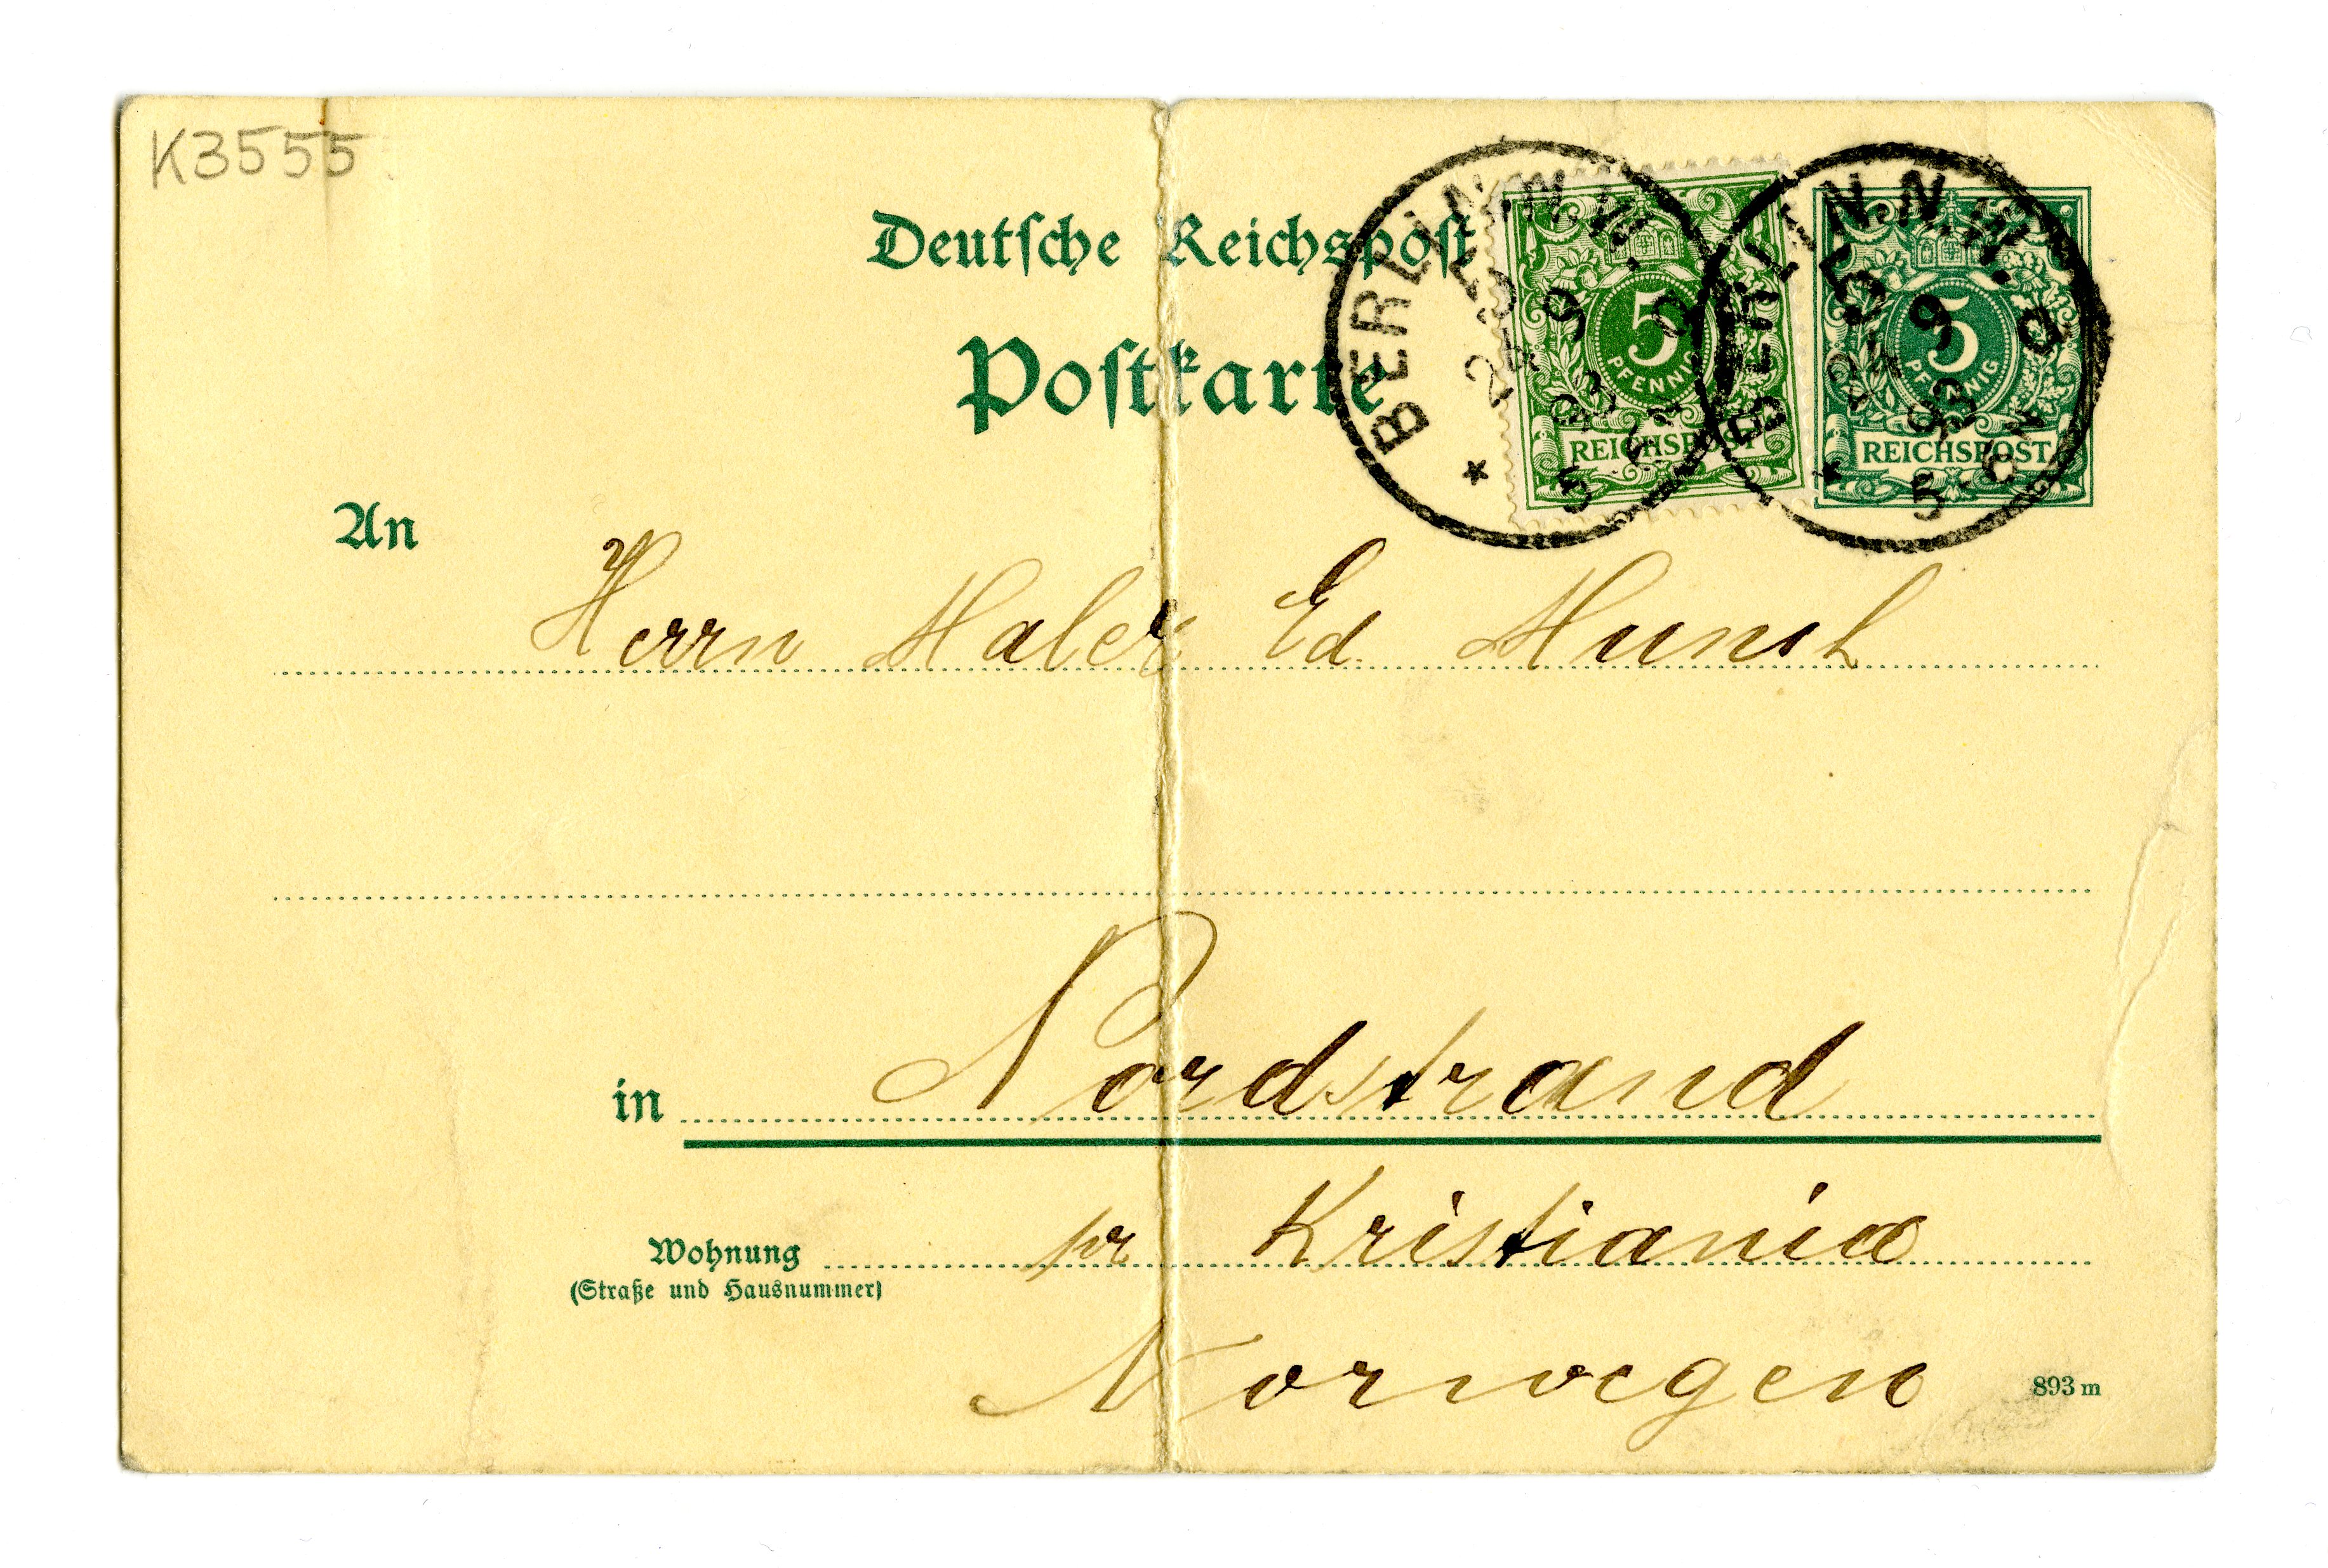 K3555
Deutſche Reichspoſt
Poſtkarte
BERLIN N.W.
BERLIN N.W.
5
PFENNIG
REICHSPOST
5
PFENNIG
REICHSPOST
An
Herrn Maler Ed Munch
in Nordstrand
Wohnung pr Kristiania
(Straße und Hausnummer)
Norwegen
893 m